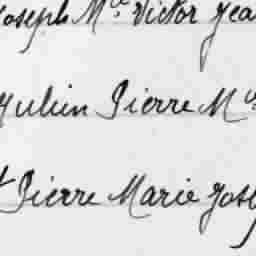 Joseph Mie Victor Jea
Julien Pierre M
Pierre Marie Jos